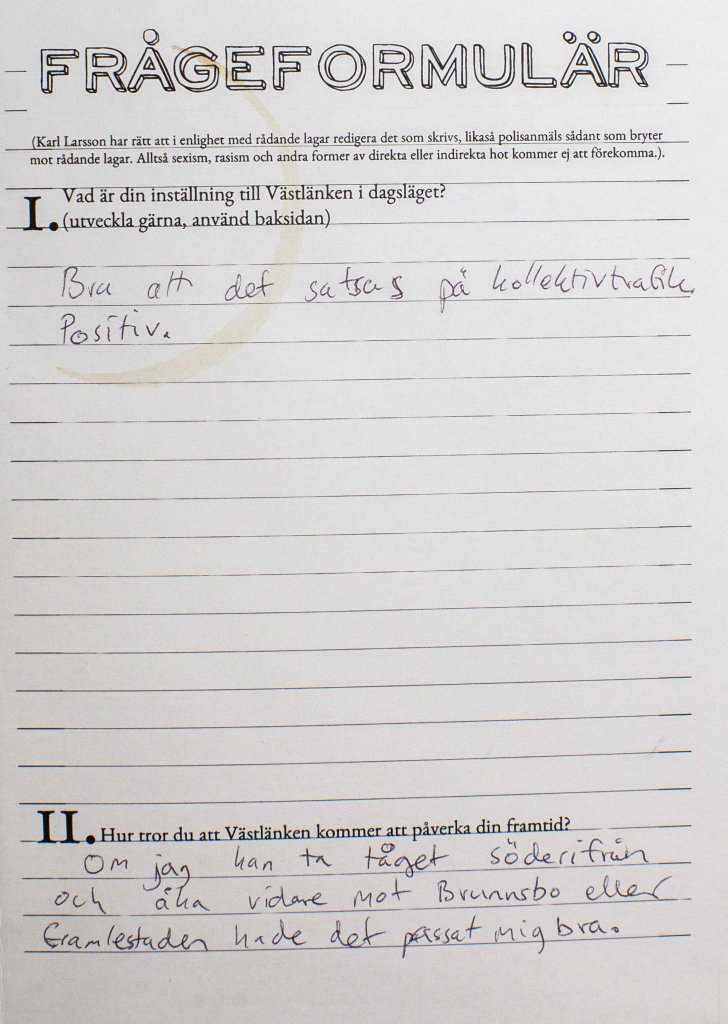 FRÅGEFORMULÄR
(Karl Larsson har rätt att i enlighet med rådande lagar redigera det som skrivs, likaså polisanmäls sådant som bryter
mot rådande lagar. Alltså sexism, rasism och andra former av direkta eller indirekta hot kommer ej att förekomma.).
I. Vad är din inställning till Västlänken i dagsläget?
(utveckla gärna, använd baksidan)
Bra att det satsas på kollektivtrafik.
Positiv.
II. Hur tror du att Västlänken kommer att påverka din framtid?
Om jag kan ta tåget söderifrån
och åka vidare mot Brunnsbo eller
Gamlestaden hade det passat mig bra.